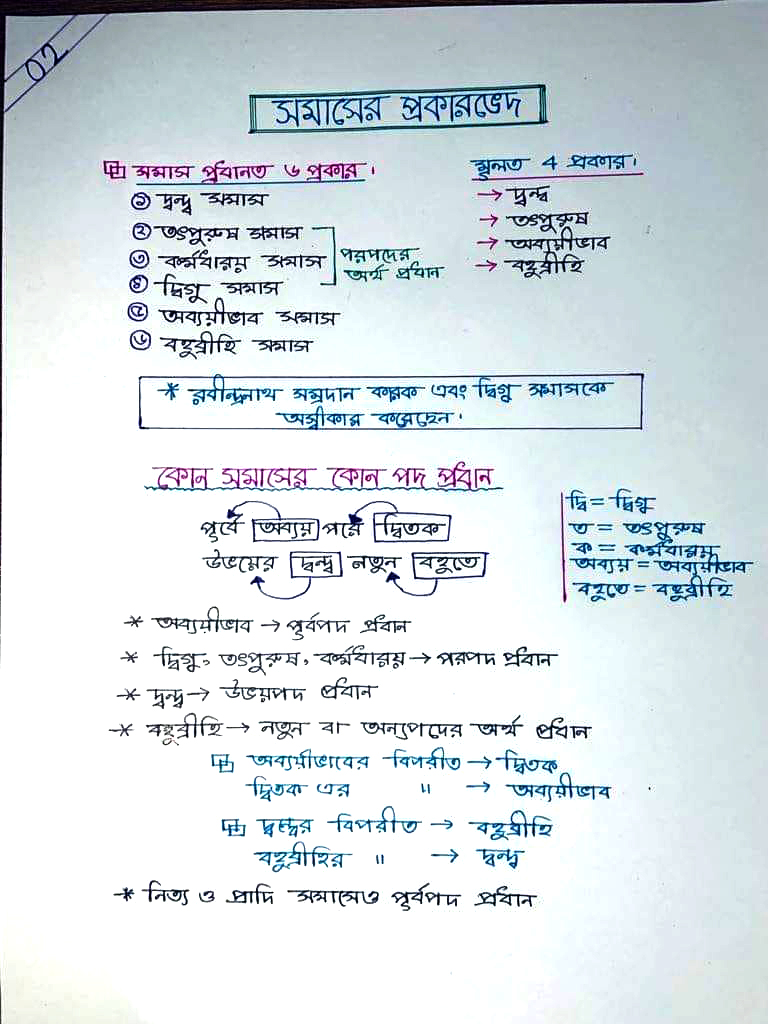 02
সমাসের প্রকারভেদ
সমাস প্রধানত ৬ প্রকার।
① দ্বন্দ্ব সমাস
② তৎপুরুষ সমাস
③ কর্মধারয় সমাস
④ দ্বিগু সমাস
পরপদের
অর্থ প্রধান
⑤ অব্যয়ীভাব সমাস
⑥ বহুব্রীহি সমাস
মূলত 4 প্রকার।
→ দ্বন্দ্ব
→ তৎপুরুষ
→ অব্যয়ীভাব
→ বহুব্রীহি
* রবীন্দ্রনাথ সম্প্রদান কারক এবং দ্বিগু সমাসকে
অস্বীকার করেছেন।
কোন সমাসের কোন পদ প্রধান
পূর্বে অব্যয় পরে দ্বিতক
উভয়ের দ্বন্দ্ব নতুন বহুতে
দ্বি = দ্বিগু
ত = তৎপুরুষ
ক = কর্মধারয়
অব্যয় = অব্যয়ীভাব
বহুতে = বহুব্রীহি
* অব্যয়ীভাব → পূর্বপদ প্রধান
* দ্বিগু, তৎপুরুষ, কর্মধারয় → পরপদ প্রধান
* দ্বন্দ্ব → উভয়পদ প্রধান
* বহুব্রীহি → নতুন বা অন্যপদের অর্থ প্রধান
অব্যয়ীভাবের বিপরীত → দ্বিতক
দ্বিতক এর " → অব্যয়ীভাব
দ্বন্দ্বের বিপরীত → বহুব্রীহি
বহুব্রীহির " → দ্বন্দ্ব
* নিত্য ও প্রাদি সমাসেও পূর্বপদ প্রধান